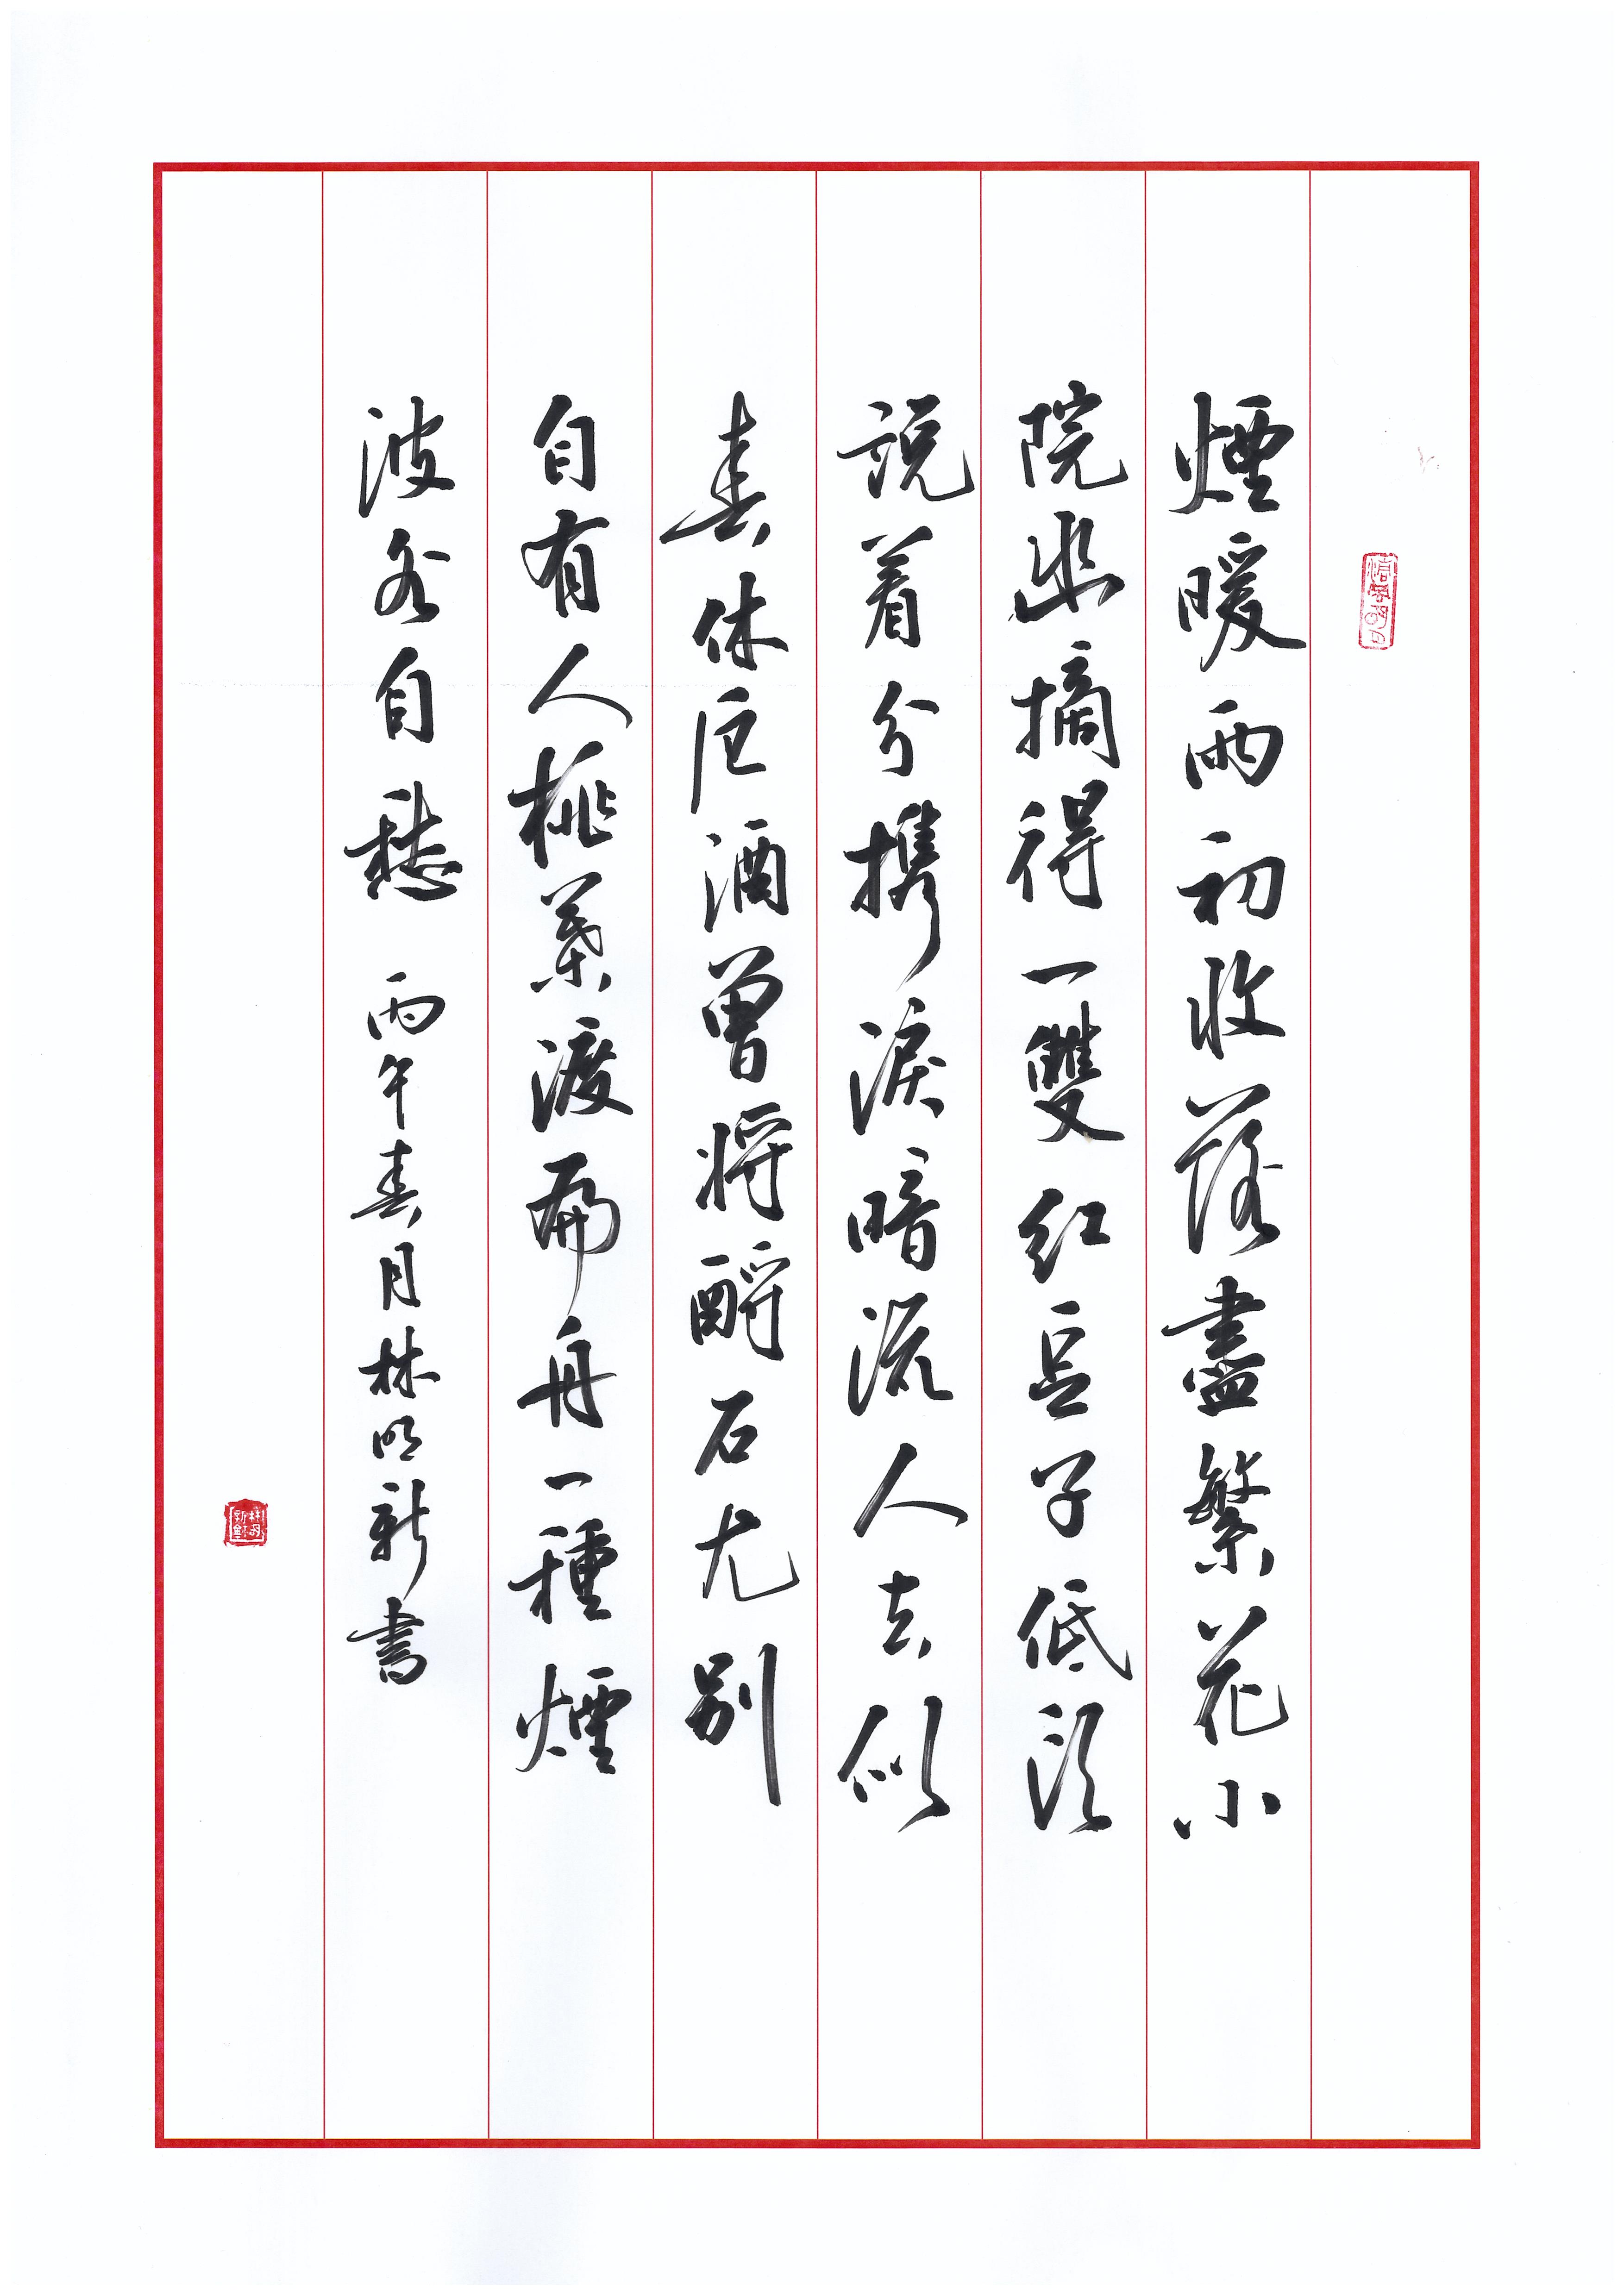 煙暖雨初收落盡繁花小
院幽摘得一雙红豆子低頭
説着分携淚暗流人去似
春休卮酒曾将酹石尤别
自有人桃葉渡扁舟一種煙
波各自愁 丙午春月林明新書